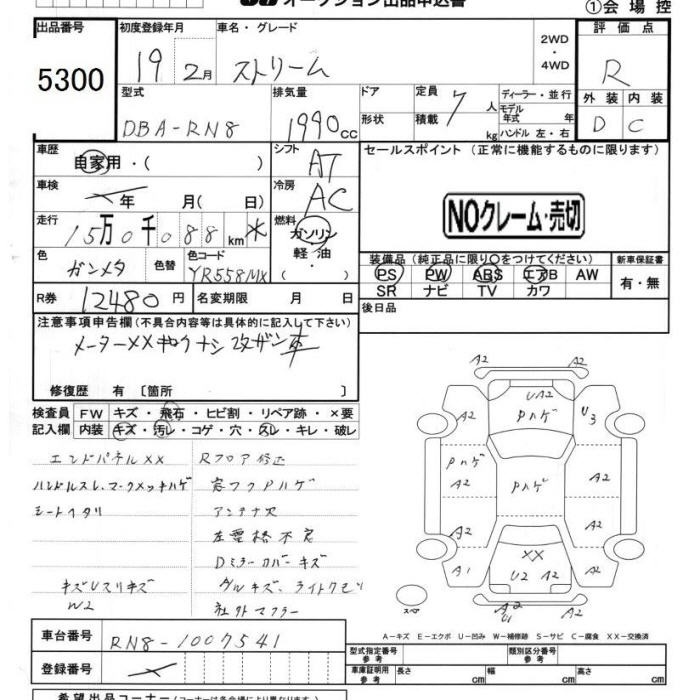 オークション出品申込書
①会場控
出品番号 初度登録年月 車名・グレード 2WD・4WD 評価点
5300 19 2月 ストリーム R
型式 排気量 ドア 定員 7人 ディーラー・並行 外装 内装
DBA-RN8 1990cc 形状 積載 kg モデル年式 年 ハンドル 左・右 D C
車歴 自家用・( ) シフト AT セールスポイント (正常に機能するものに限ります)
車検 年 月( 日) 冷房 AC
NOクレーム・売切
走行 15万0千088km* 燃料 ガソリン 軽油・( )
装備品 (純正品に限り○をつけてください) 新車保証書
色 ガンメタ 色替 色コード YR558MX PS PW ABS エアB AW 有・無
SR ナビ TV カワ
R券 12480円 名変期限 月 日 後日品
注意事項申告欄 (不具合内容等は具体的に記入して下さい)
メーターXX キロクナシ 改ザン車
修復歴 有 〔箇所 〕
検査員 FW キズ・飛石・ヒビ割・リペア跡・×要
記入欄 内装 キズ・汚レ・コゲ・穴・スレ・キレ・破レ
エンドパネルXX Rフロア修正
ハンドルスレ、マークメッキハゲ
シートヘタリ アンテナ欠
Dミラーカバーキズ
W2 社外マフラー
A2 A2
A2 UA2 PハゲU3
Pハゲ A2 Pハゲ A2
A2 A2
A1 XX U2 A2 A2
スペ A2 A2
A-キズ E-エクボ U-凹み W-補修跡 S-サビ C-腐食 XX-交換済
車台番号 RN8-1007541
型式指定番号 参考 類別区分番号 参考
登録番号 車庫証明用 参考 長さ cm 幅 cm 高さ cm
希望出品コーナー